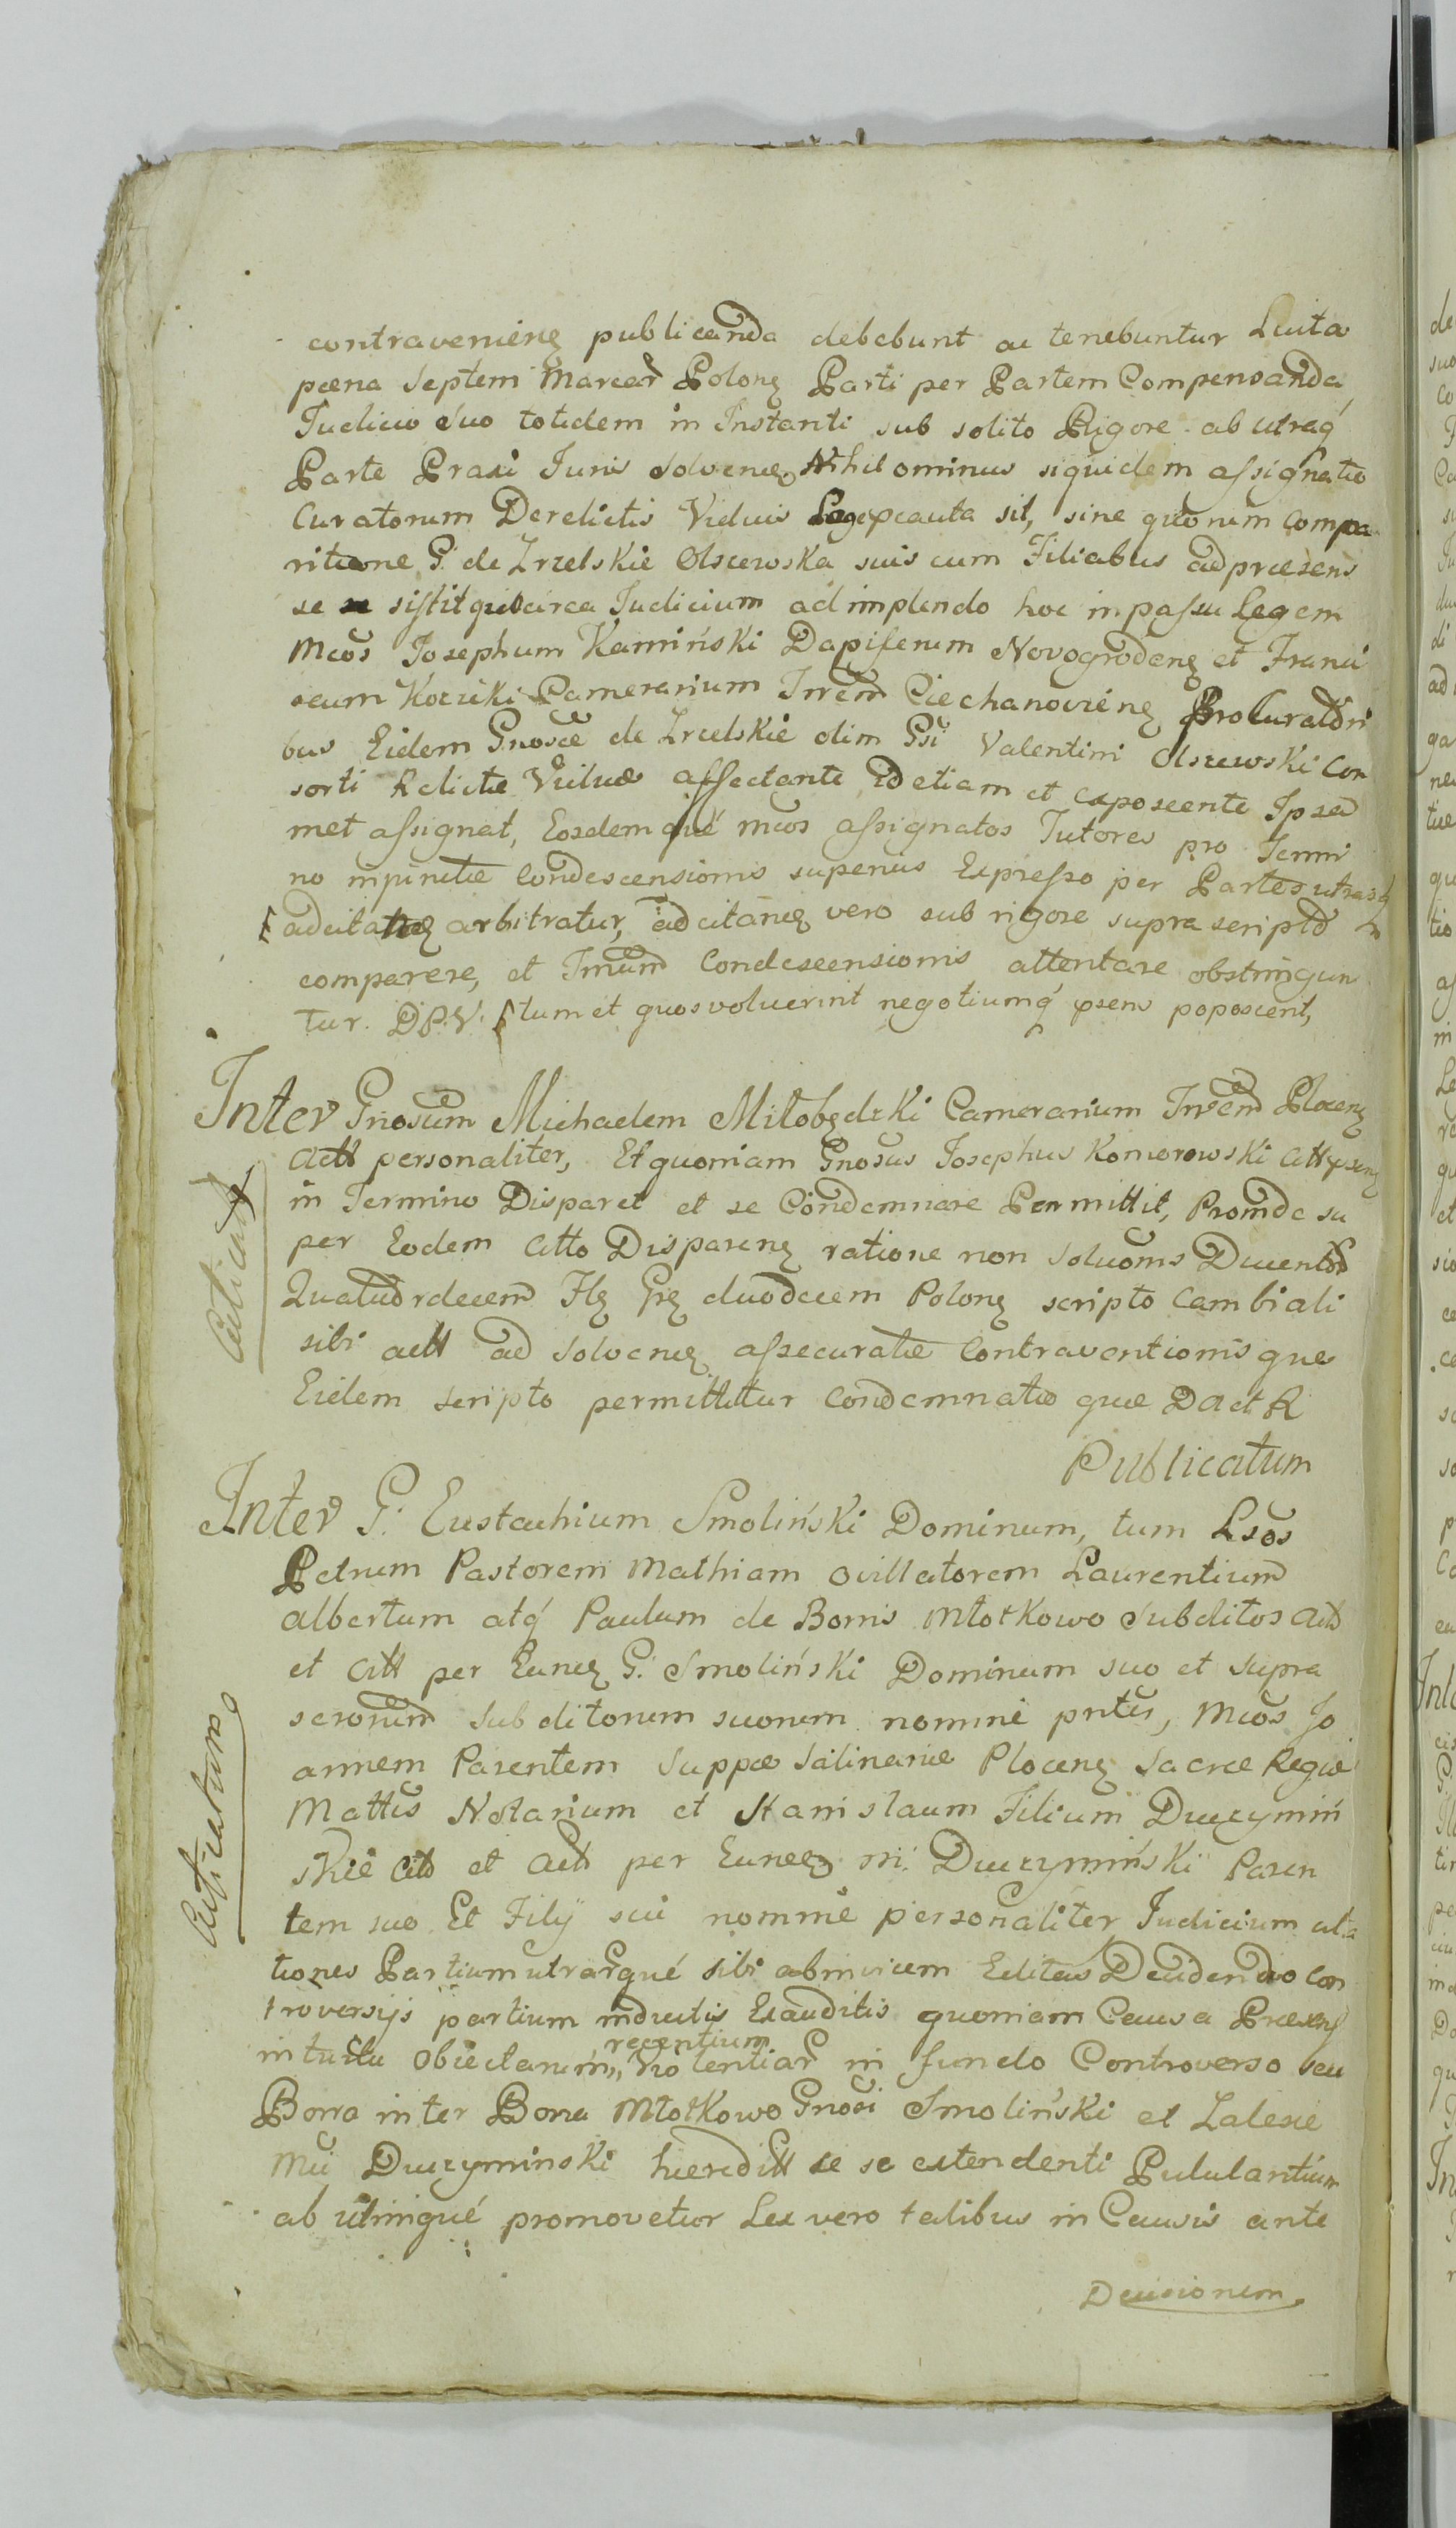 contravenienz publicanda debebunt ac tenebuntur Luita
pœna Septem Marcar Polonz Parti per Partem Compensanda
Iudicio Suo totidem in Instanti sub solito Rigore ab utraq́
Parte Praxi Iuris Solvenz Nihilominus siquidem assignatio
Curatorum Derelictis Viduis Lege cauta sit, sine quorum Compa
ritione G. de Zrzelskie Olszewska suis cum Filiabus ad præsens
se sistit Iudicium ad implendo hoc in passu Legem
Mcos Iosephum Kamiński Dapiferum Novogrodenz et Franci
scum Kozicki Camerarium Trrem Ciechanovienz Procuratori
bus Eidem Gnosæ de Zrzelskie olim Gsi Valentini Olszewski Con
sorti Relictæ Viduæ affectante id etiam et exposcente Ipsa
met assignat, Eosdemqué Mcos assignatos Tutores pro Termi
no Condescensionis superius Expresso per Partes utrasq́
adcitanz arbitratur, adcitanz vero sub rigore supra script
comparere, et Tmum Condescensionis attentare obstringun
tur. D.P.V. tum et quos voluerint negotiumq́ psens poposcent,
Inter Gnosum Michaelem Miłobędzki Camerarium Trrem Plocenz
Actt personaliter, Et quoniam Gnosus Iosephus Komorowski Citt psenz
in Termino Disparet et se Condemnare Permittit, Proinde su
per Eodem Citto Disparenz ratione non Solvonis Ducentor
Quatuordecem Flz Grz duodecem Polonz scripto Cambiali
sibi actt ad Solvenz assecuratæ Contraventionisque
Eidem scripto permittitur Condemnatio quæ D A et R
Publicatum
Inter G. Eustachium Smoliński Dominum, tum Lsos
Petrum Pastorem Mathiam Ovillatorem Laurentium
Albertum atq́ Paulum de Bonis Młotkowo Subditos Act
et Citt per Eunz G. Smoliński Dominum suo et supra
scrorum Subditorum suorum nomine pntes, Mcos Jo
annem Parentem Suppæ Salinariæ Plocenz Sacræ Regiæ
Mattis Notarium et Stanislaum Filium Duczymiń
skie Cit et Act per Eunz M. Duczymiński Paren
tem suo Et Filij sui nomine personaliter Iudicium cita
tiones Partium utrarqué sibi abinvicem Editas Decidendo Con
troversijs partium inductis Exauditis quoniam Causa Præsens
recentium
intuitu Obiectarum, Violentiar in fundo Controverso seu
Borra inter Bona Młotkowo Gnosi Smoliński et Zalesie
Mci Duczyminski hæreditt se se extendenti Pululantium
ab utrinqué promovetur Lex vero talibus in Causis ante
Decisionem